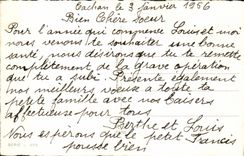 Cachan le 3 Janvier 1956
Bien Chère Soeur
Pour l'année qui commence Louis et moi
nous venons te souhaiter une bonne
santé, nous désirons que tu te remette
complètement de la grave opération
que tu a subi. Présente également
nos meilleurs voeux à toute la
petite famille avec nos baisers
affectueux pour tous
Berthe et Louis
Nous espérons que le petit Francis
pousse bien